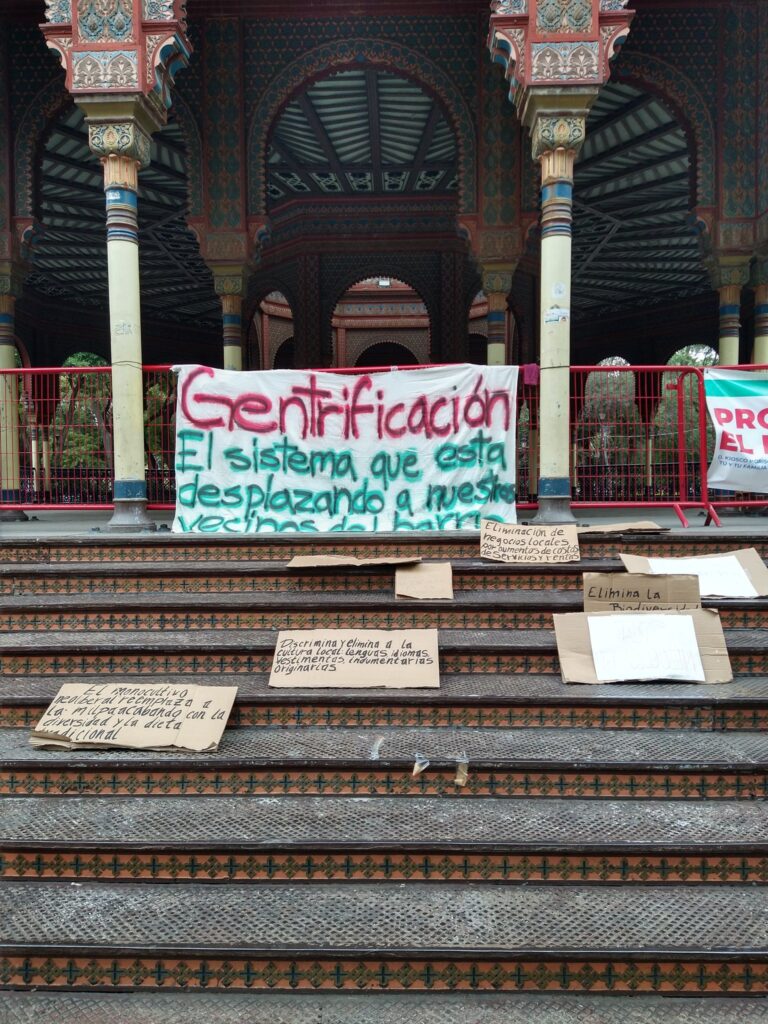 Gentrificación
El sistema que esta
desplazando a nuestros
vecinos del barrio
PRO
EL
EL KIOSCO MORIS
TÚ Y TU FAMILIA
Eliminación de
negocios locales
por aumentos de costos
de servicios y rentas
Elimina la
Biodiversidad
Discrimina y elimina a la
cultura local: lenguas, idiomas,
vestimentas, indumentarias
originarias
El monocultivo
neoliberal reemplaza a
la milpa acabando con la
diversidad y la dieta